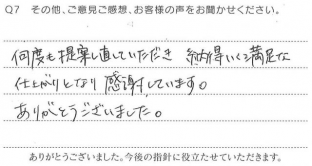 Q7 その他、ご意見ご感想、お客様の声をお聞かせください。
何度も提案し直していただき 納得いく満足な
仕上がりとなり 感謝しています。
ありがとうございました。
ありがとうございました。今後の指針に役立たせていただきます。